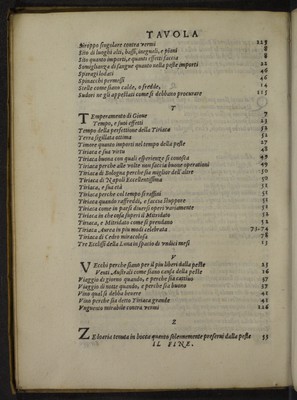 TAVOLA
Siroppo singulare contra vermi 125
Sito di luoghi alti, bassi, inequali, e piani 8
Sito quanto importi, e quanti effetti faccia 8
Someglianza di sangue quanto nella peste importi 22
Spiragi lodati 46
Spinacchi permessi 46
Stelle come siano calde, o fredde, 14
Sudori ne gli appestati come si debbano procurare 115
T
Temperamento di Gioue 7
Tempo, e suoi effetti 23
Tempo della perfettione della Tiriaca 52
Terra sigillata ottima 51
Timore quanto importi nel tempo della peste 27
Tiriaca e sua virtù 48
Tiriaca buona con quali esperienze si conosca 49
Tiriaca perche alle volte non faccia buone operationi 49
Tiriaca di Bologna perche sia miglior dell'altre 50
Tiriaca di Napoli Eccellentissima 50
Tiriaca, e sua età 51
Tiriaca perche col tempo si raffini 51
Tiriaca quando raffreddi, e faccia stuppore 51
Tiriaca come in parti diuersi operi variamente 51
Tiriaca in che cosa superi il Metridato 52
Tiriaca, e Mitridato come si prendano 52
Tiriaca Aurea in piu modi celebrata 73. 74
Tiriaca di Cedro miracolosa 78
Tre Ecclissi della Luna in spatio de vndici mesi 15
V
Vecchi perche siano per il piu liberi dalla peste 25
Venti Australi come siano causa della peste 16
Viaggio di giorno quando, e perche sia cattiuo 37
Viaggio di notte quando, e perche sia buono 37
Vino qual si debba beuere 41
Vino perche sia detto Tiriaca grande 41
Vnguento mirabile contra vermi 126
Z
Zedoaria tenuta in bocca quanto felicemente preserui dalla peste 55
IL FINE.